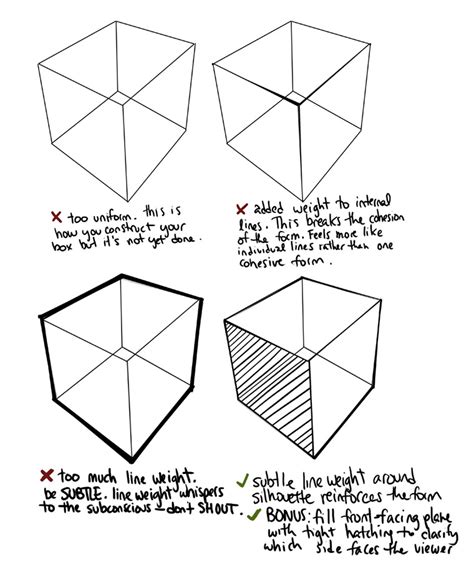 × too uniform. this is
how you construct your
box but it's not yet done.
× added weight to internal
lines. This breaks the cohesion
of the form. Feels more like
individual lines rather than one
cohesive form.
× too much line weight.
be SUBTLE. line weight whispers
to the subconscious - don't SHOUT.
✓ subtle line weight around
silhouette reinforces the form
✓ BONUS: fill front-facing plane
with tight hatching to clarify
which side faces the viewer